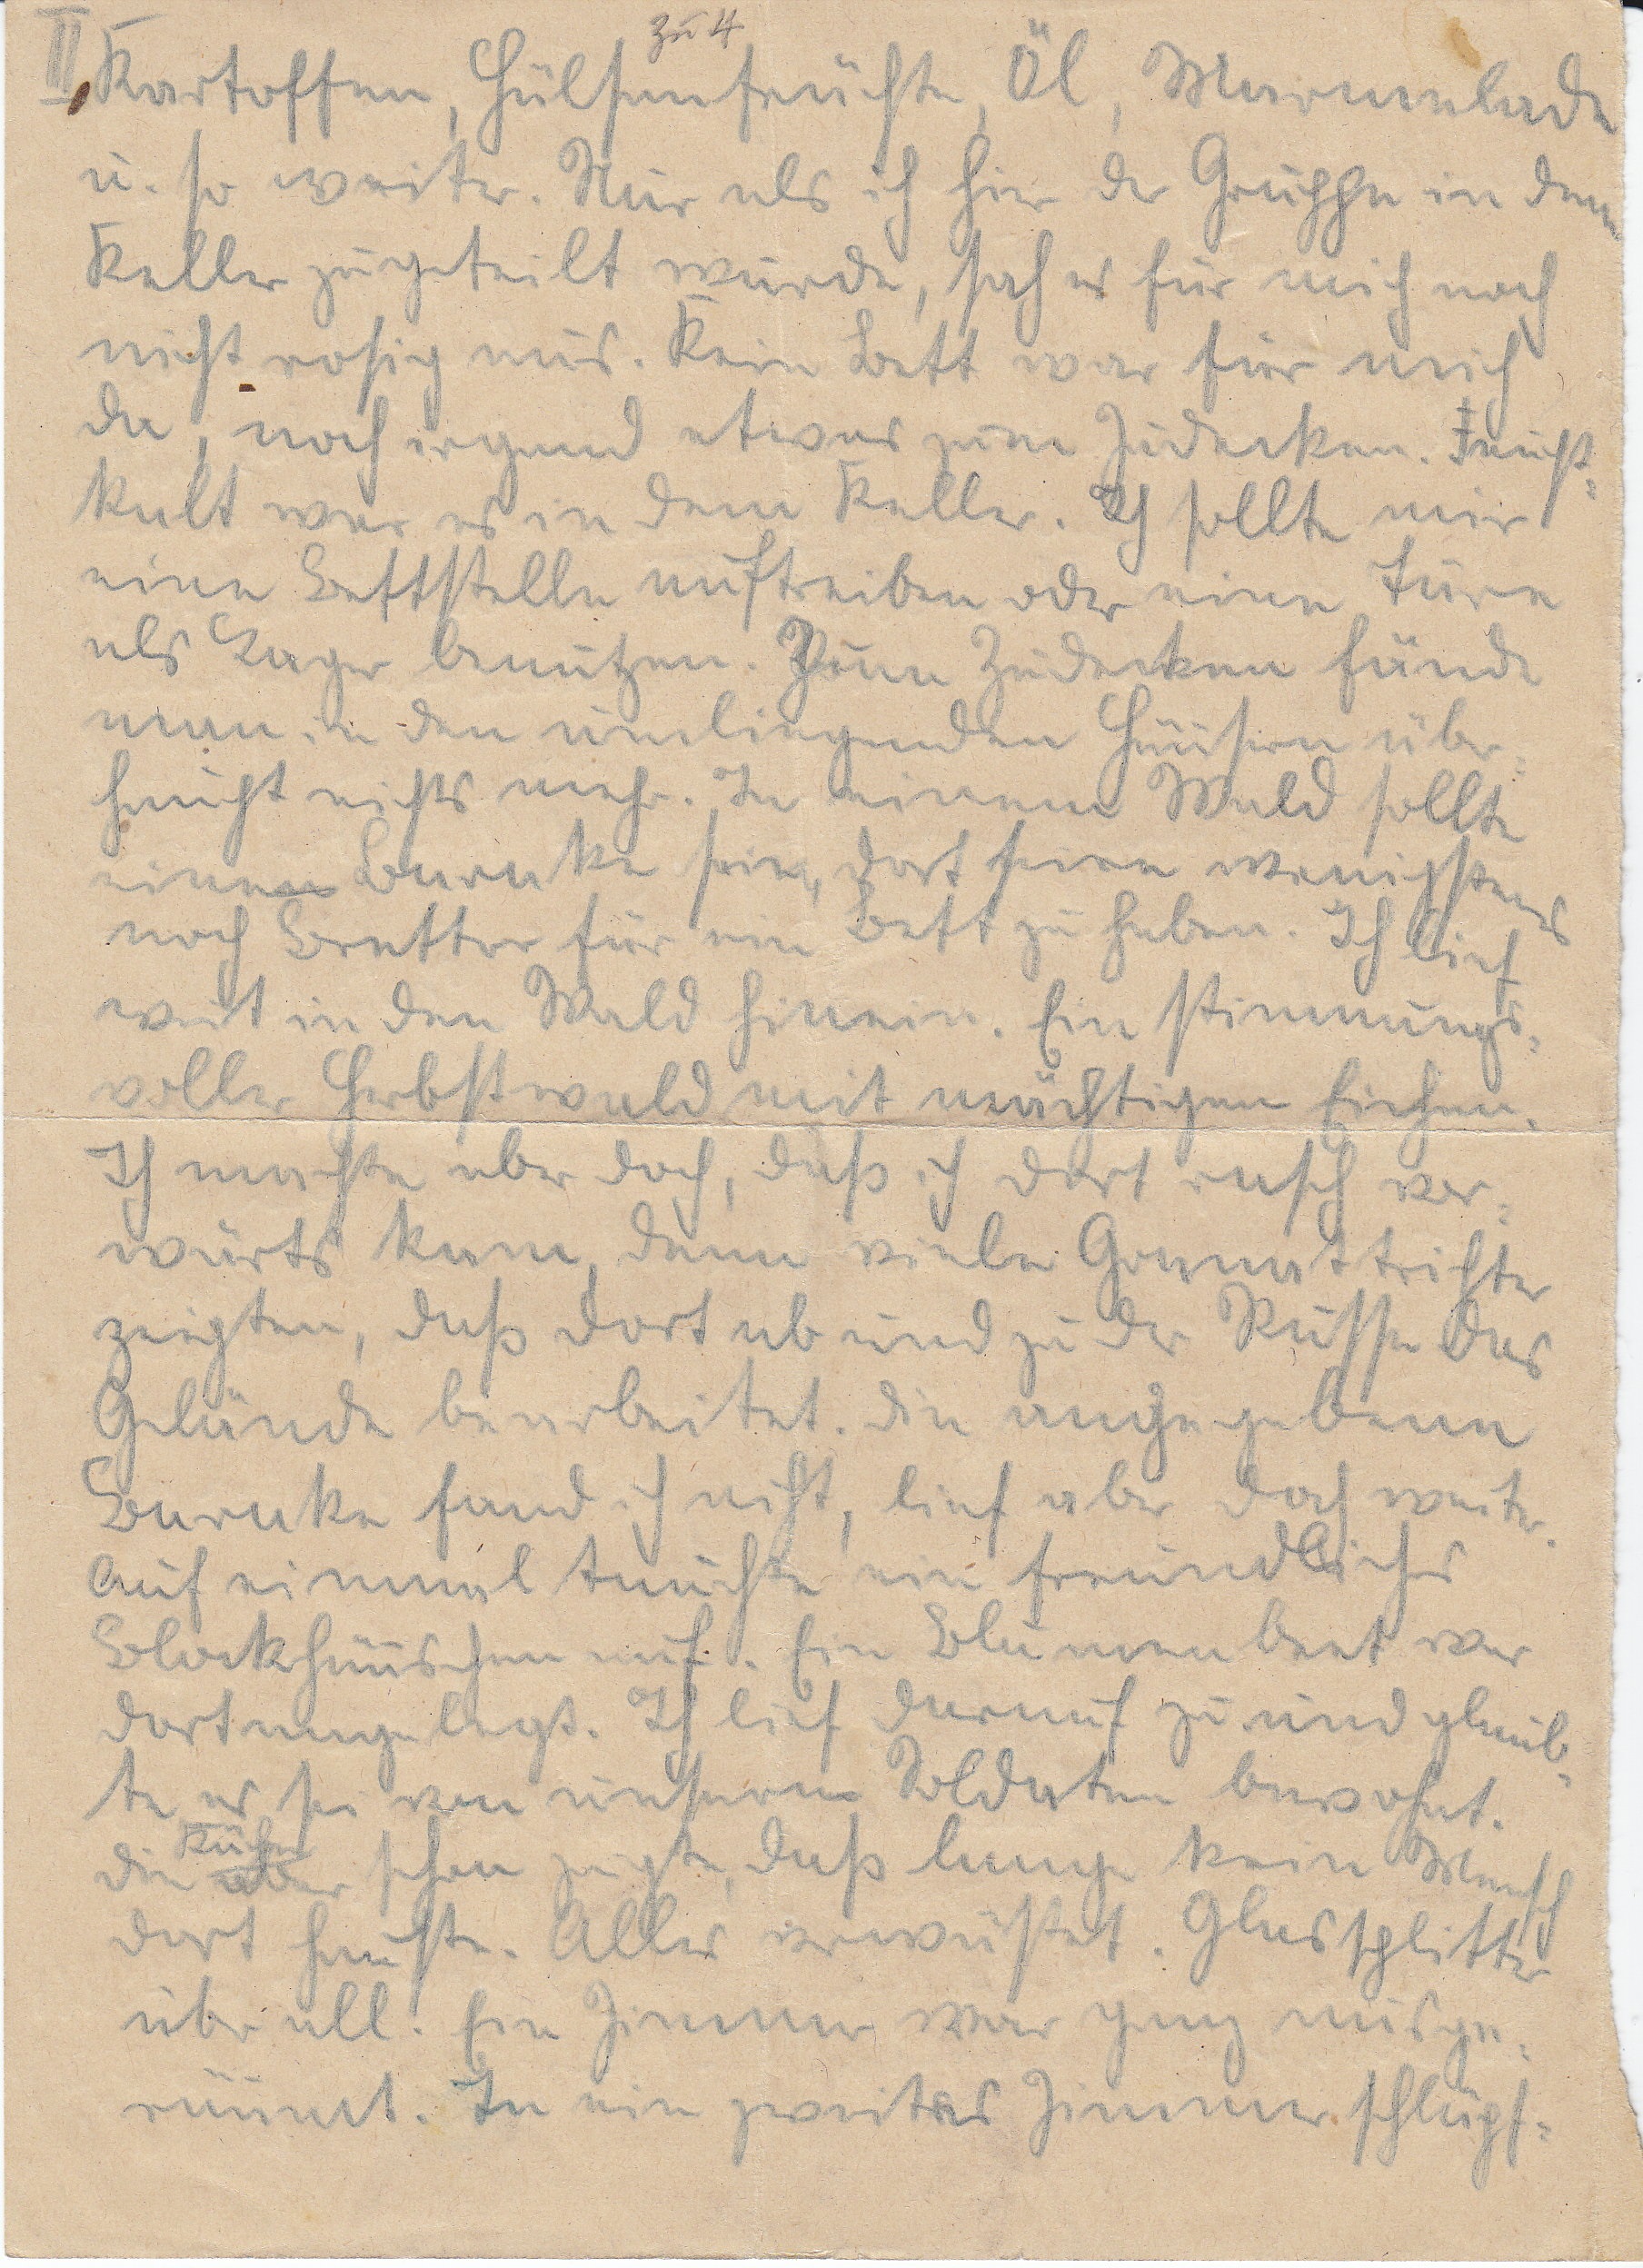 zu 4
II Kartoffen, Hülsenfrüchte, Öl, Marmelade
u. so weiter. Nur als ich hier der Gruppe in dem
Keller zugeteilt wurde, sah es für mich noch
nicht rosig aus. Kein Bett war für mich
da, noch irgend etwas zum Zudecken. Feucht-
kalt war es in dem Keller. Ich sollte mir
eine Bettstelle auftreiben oder eine Türe
als Lager benützen. Zum Zudecken fände
man in den umliegenden Häusern über-
haupt nichts mehr. In einem Wald sollte
eine Baracke sein, dort seien wenigstens
noch Bretter für ein Bett zu haben. Ich lief
weit in den Wald hinein. Ein stimmungs-
voller Herbstwald mit mächtigen Eichen.
Ich machte aber doch, daß ich dort rasch vor-
wärts kam, denn viele Granattrichter
zeigten, daß dort ab und zu der Russe das
Gelände bearbeitet. Die angegebene
Baracke fand ich nicht, lief aber doch weiter.
Auf einmal tauchte ein freundliches
Blockhäuschen auf. Ein Blumenbeet war
dort angelegt. Ich lief darauf zu und glaub-
te es sei von unseren Soldaten bewohnt.
Die Küche schon zeigte, daß lange kein Mensch
dort hauste. Alles verwüstet. Glassplitter
überall. Ein Zimmer war ganz ausge-
räumt. In ein zweites Zimmer schlüpf-